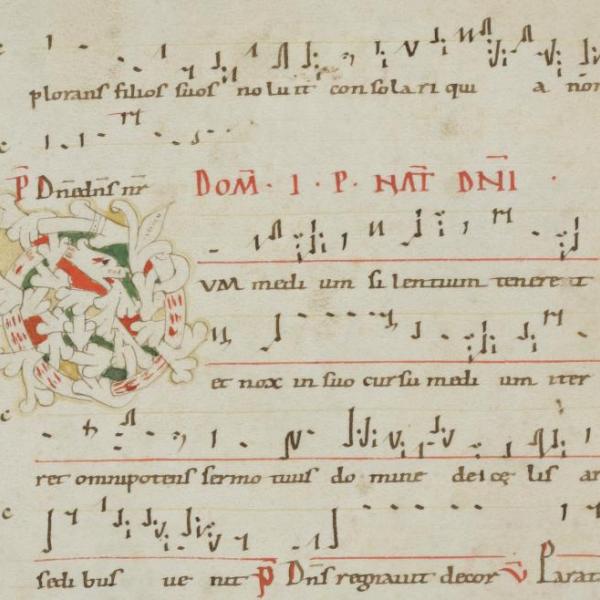 plorans filios suos noluit consolari qui a non
P Dn̄e dn̄s nr̄ DOM̄ · I · P · NAT̄ DN̄I ·
UM medi um si lentium tenere t
et nox in suo cursu medi um iter
ret omnipotens sermo tuus do mine de i cę lis
sedi bus ve nit P Dn̄s regnavit decor V Parat